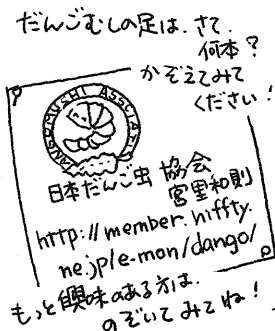 だんごむしの足は、さて
何本?
かぞえてみて
ください!
DANGOMUSHI ASSCIATI
日本だんご虫 協会
宮里和則
http://member.nifty.
ne.jp/e-mon/dango/
もっと興味のある方は、
のぞいてみてね!